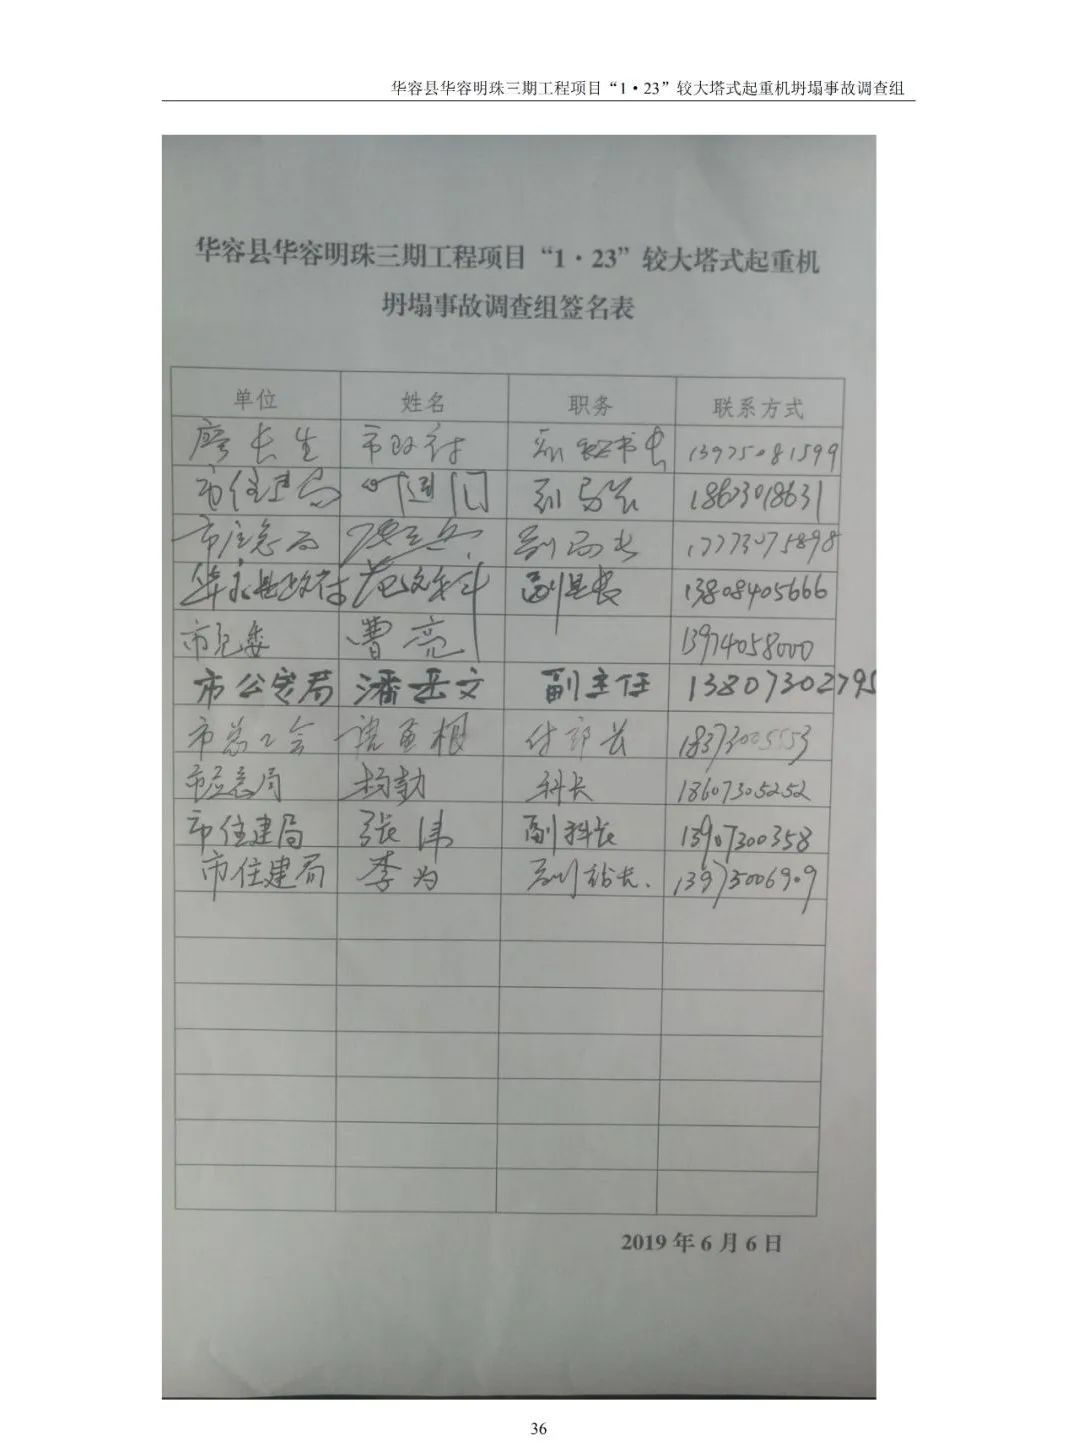 华容县华容明珠三期工程项目“1·23”较大塔式起重机坍塌事故调查组
华容县华容明珠三期工程项目“1·23”较大塔式起重机
坍塌事故调查组签名表
单位 姓名 职务 联系方式
廖长生 市政府 副秘书长 13975081599
市住建局 副局长 18673018631
市应急局 副局长 17773075898
华容县政府 副县长 13808405666
市纪委 曹亮 13974058000
市公安局 潘岳文 副主任 13807302795
市总工会 付部长 18373005553
市应急局 杨勃 科长 18607305252
市住建局 张伟 副科长 13907300358
市住建局 李为 副站长. 13973006909
2019年6月6日
36